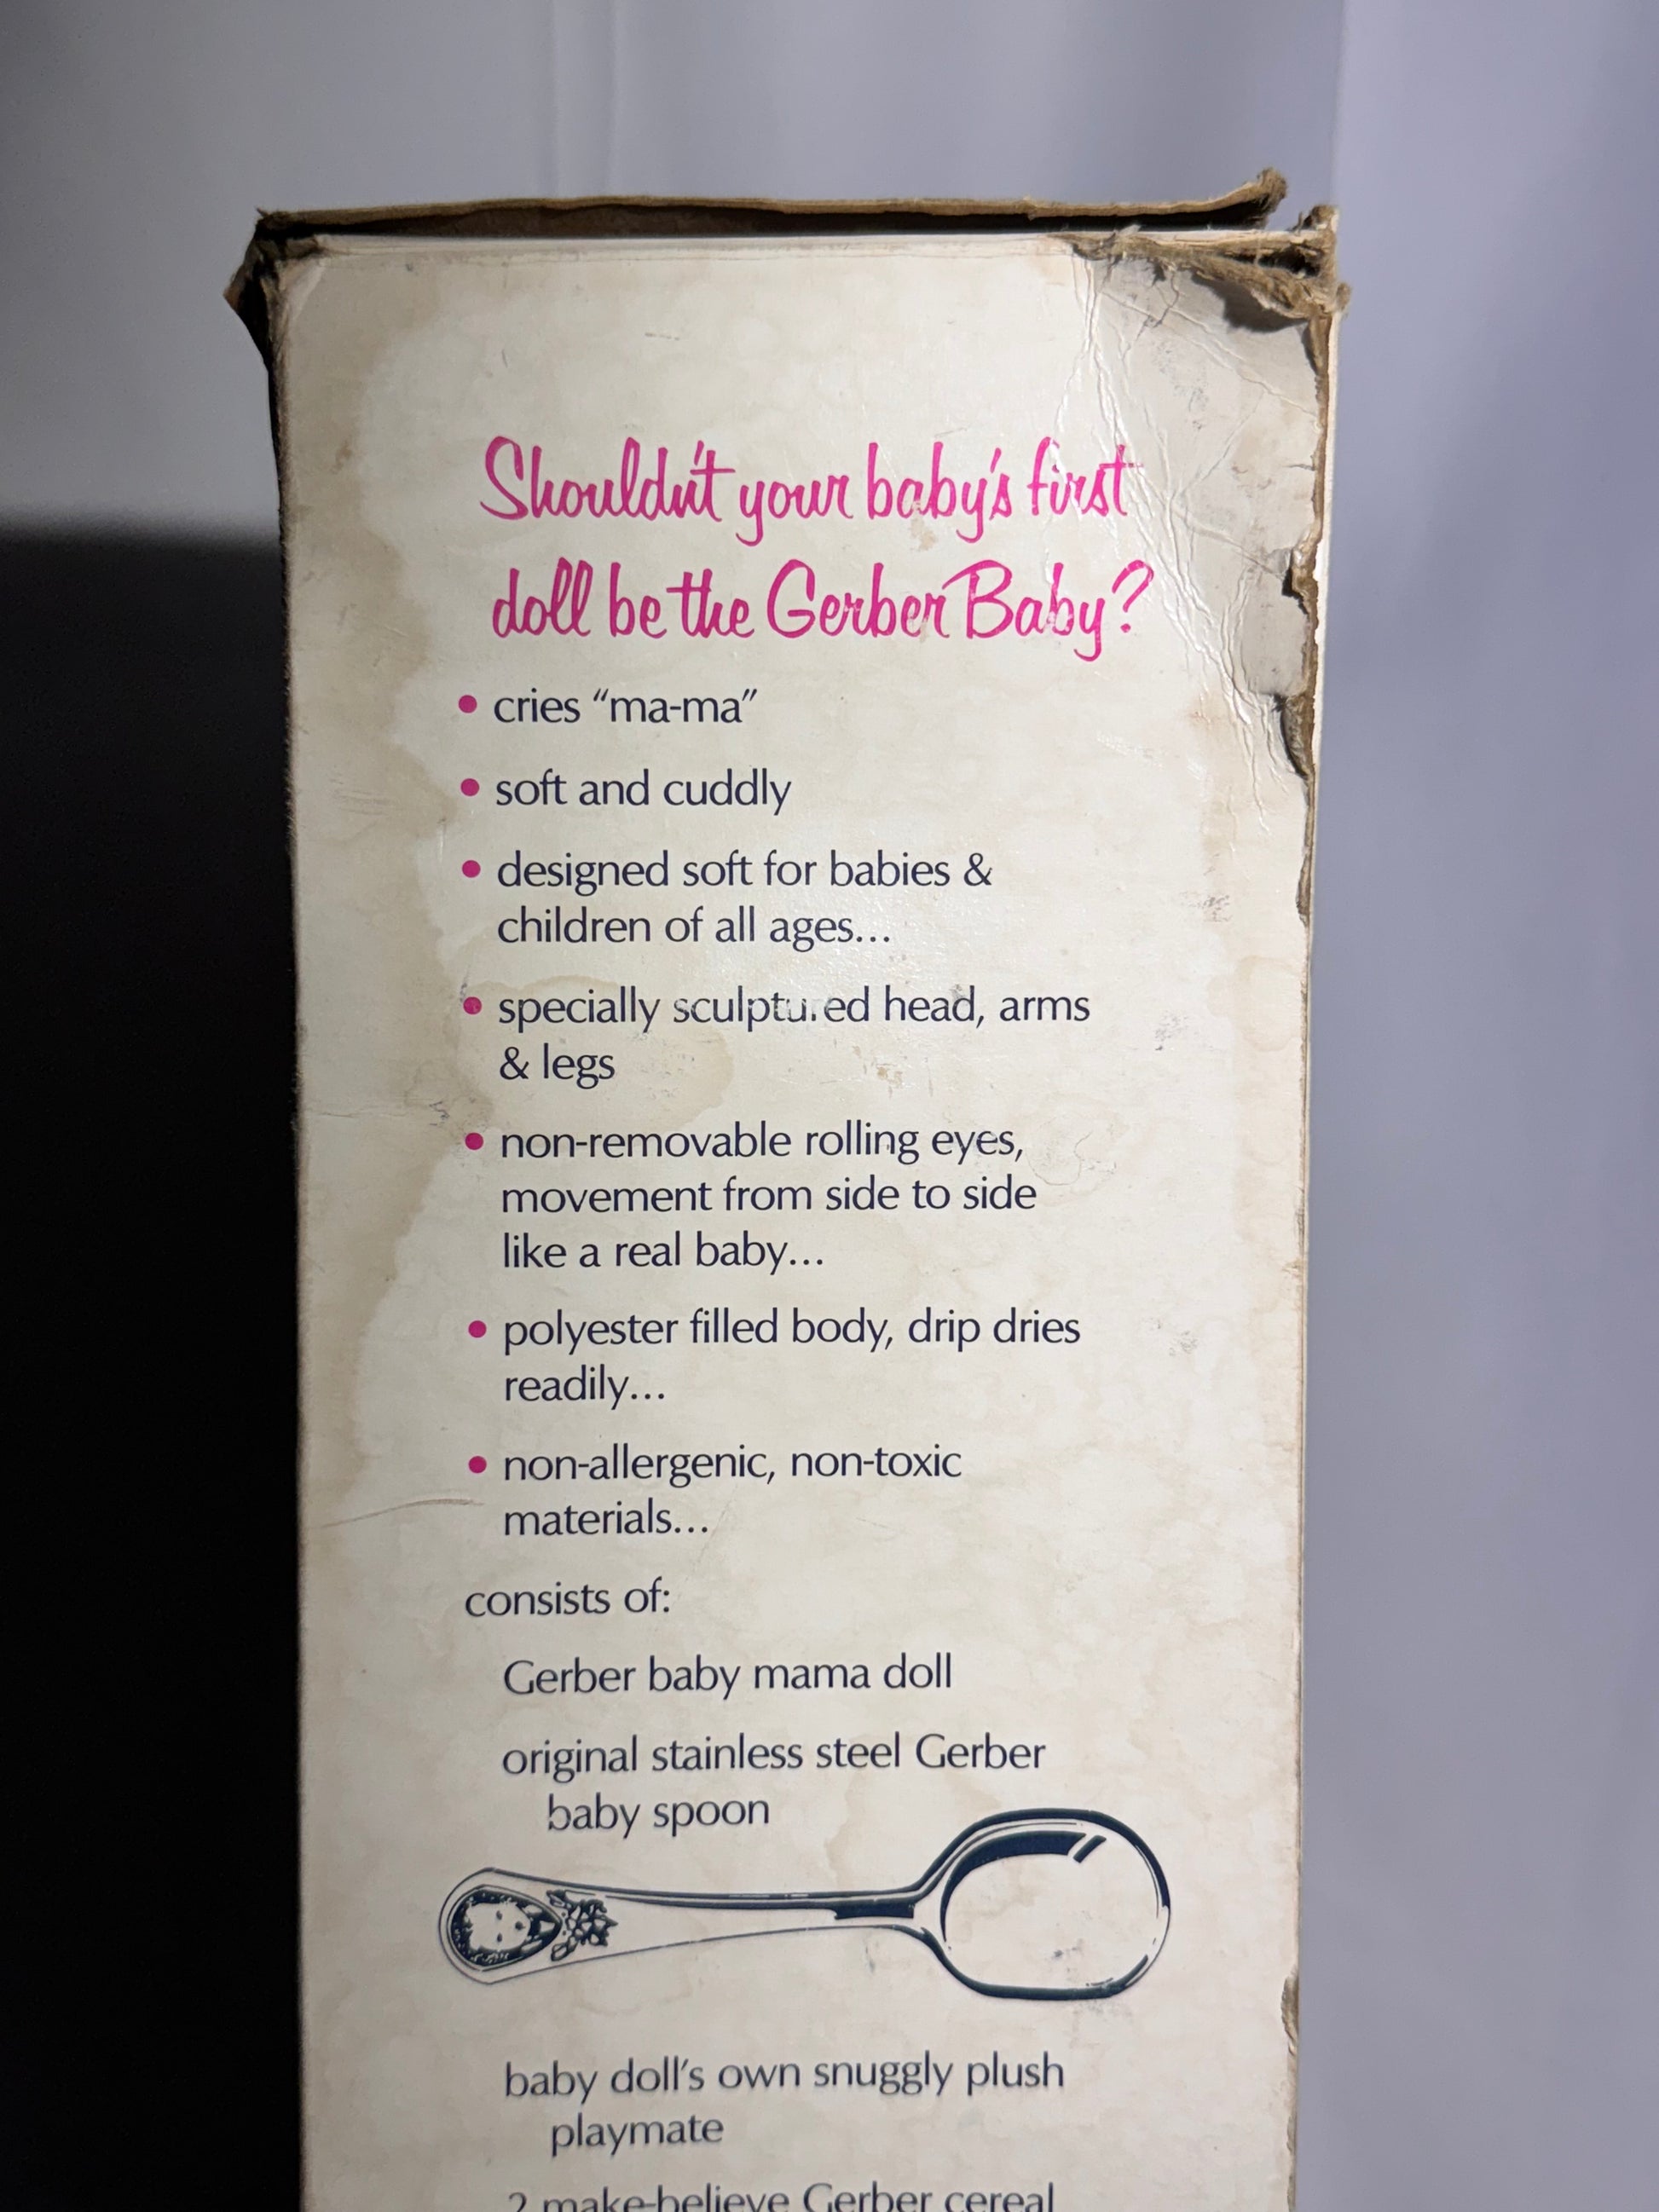 Shouldn't your baby's first
doll be the Gerber Baby?
• cries "ma-ma"
• soft and cuddly
• designed soft for babies &
children of all ages...
• specially sculptured head, arms
& legs
• non-removable rolling eyes,
movement from side to side
like a real baby...
• polyester filled body, drip dries
readily...
• non-allergenic, non-toxic
materials...
consists of:
Gerber baby mama doll
original stainless steel Gerber
baby spoon
baby doll's own snuggly plush
playmate
2 make-believe Gerber cereal